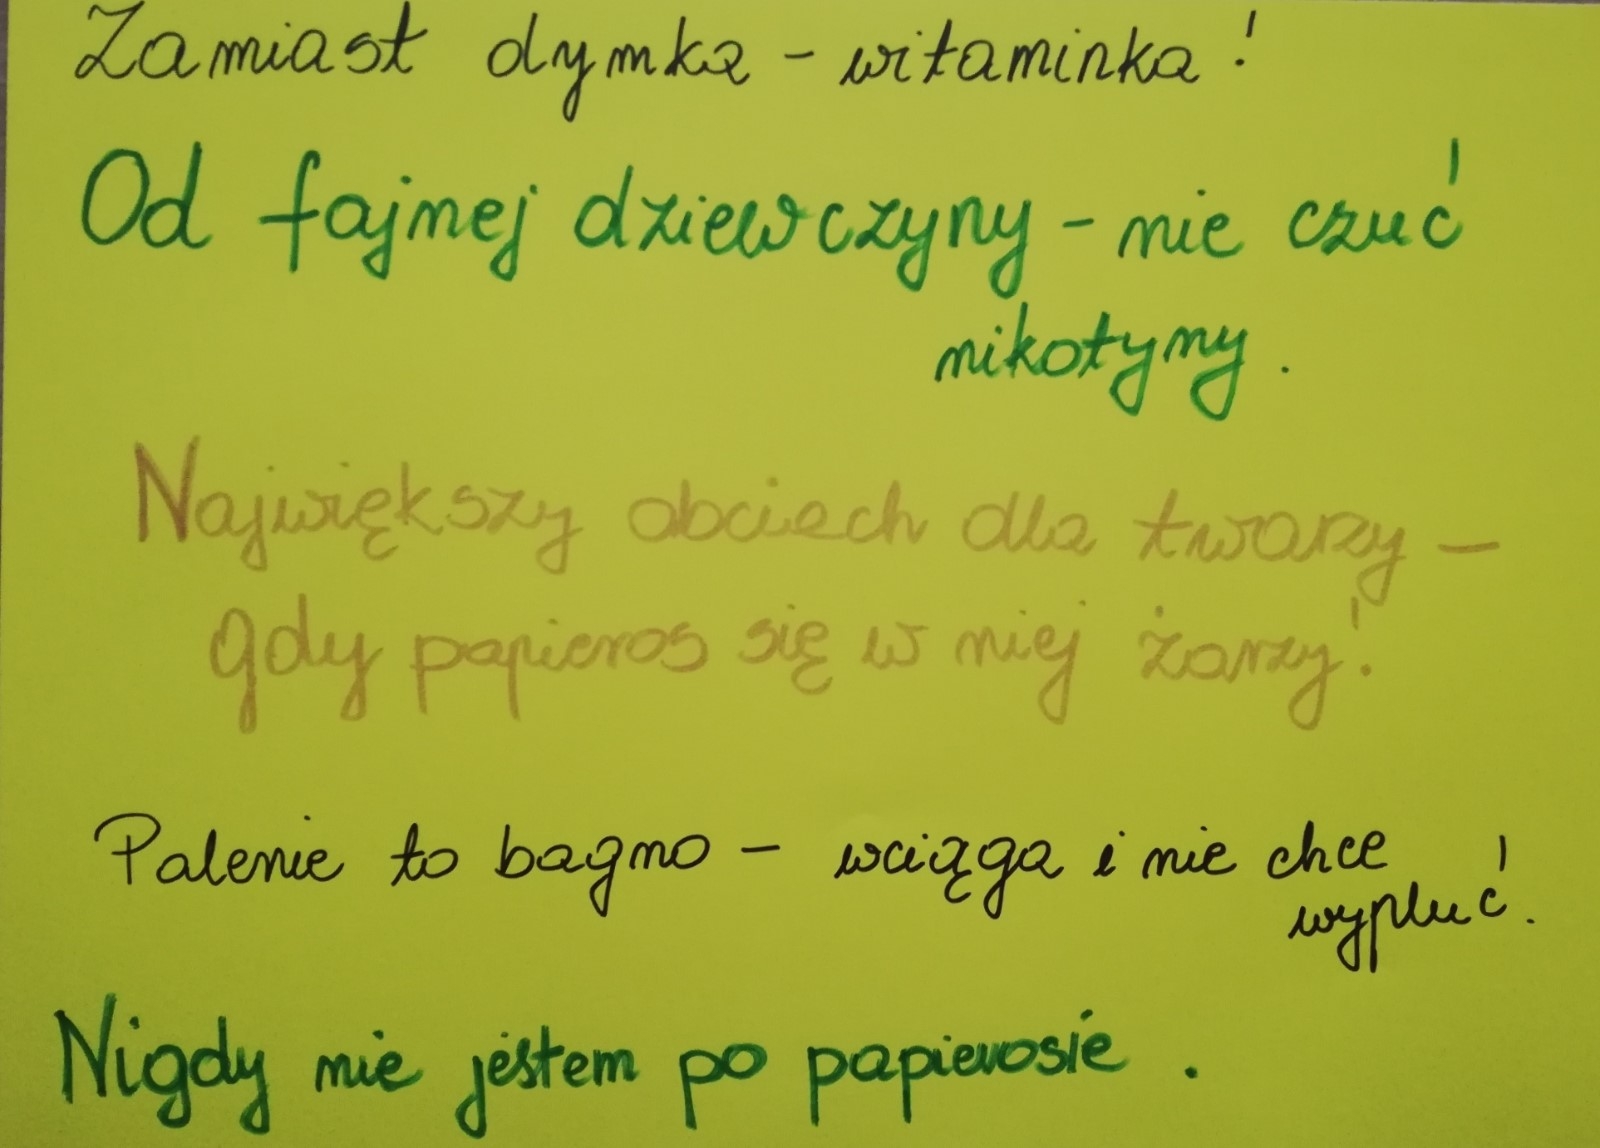 Zamiast dymka - witaminka!
Od fajnej dziewczyny - nie czuć
nikotyny.
Największy obciach dla twarzy -
gdy papieros się w niej żarzy!
Palenie to bagno - wciąga i nie chce
wypluć.
Nigdy nie jestem po papierosie.